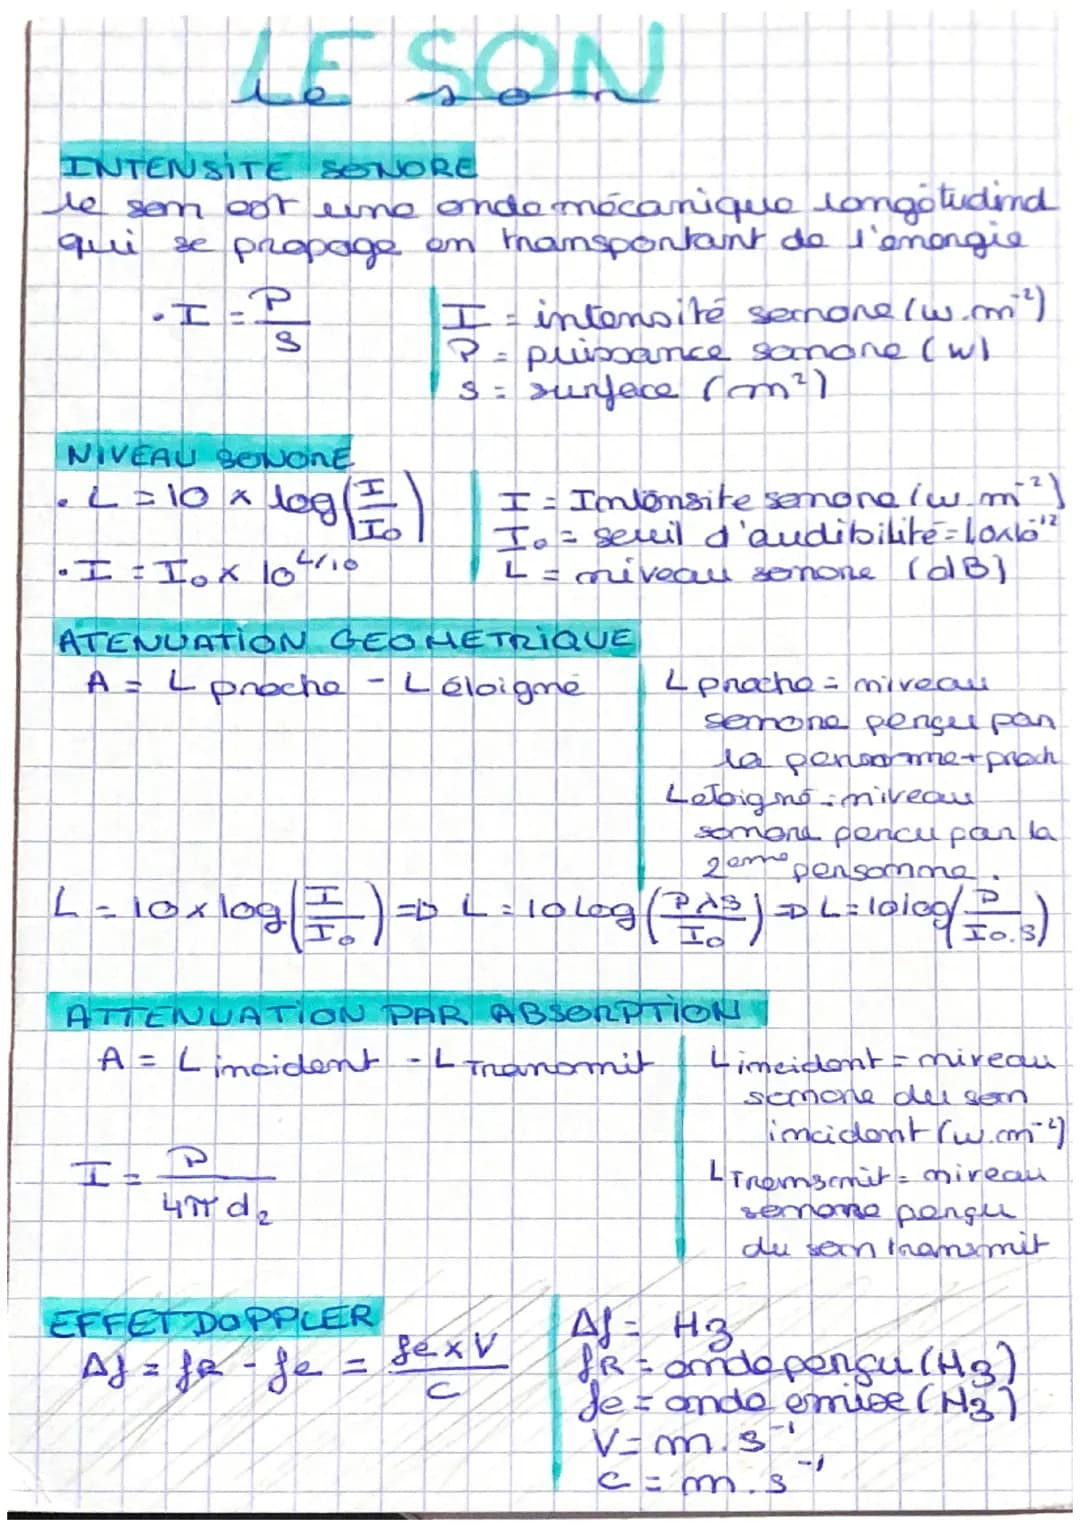 LE SON
Le son
INTENSITE SONORE
Le son est une onde mécanique longitudinal
qui se propage en transportant de l'énergie
• I = P/S
I = intensité sonore (w.m⁻²)
P = puissance sonore (w)
S = surface (m²)
NIVEAU SONORE
• L = 10 x log(I/I₀)
• I = I₀ x 10^L/10
I = Intensite sonore (w.m⁻²)
I₀ = seuil d'audibilité = 1,0x10⁻¹²
L = niveau sonore (dB)
ATENUATION GEOMETRIQUE
A = L proche - L éloigné
L proche = niveau
sonore perçu par
la personne + proch
L eloigné = niveau
sonore percu par la
2eme personne.
L = 10 x log(I/I₀) => L = 10 log( / I₀) => L = 10 log(P/I₀.S)
ATTENUATION PAR ABSORPTION
A = L incident - L Transmit
L incident = niveau
sonore du son
incident (w.m⁻²)
L Transmit = niveau
sonore perçu
du son transmit
I = P/4π d₂
EFFET DOPPLER
Δf = fR - fe = fe x V/c
Δf = Hz
fR = onde perçu (Hz)
fe = onde emise (Hz)
V = m.s⁻¹
c = m.s⁻¹